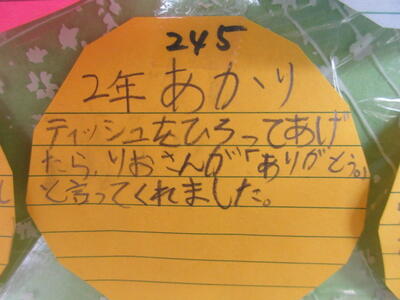 245
2年 あかり
ティッシュをひろってあげ
たら、りおさんが「ありがとう。」
と言ってくれました。